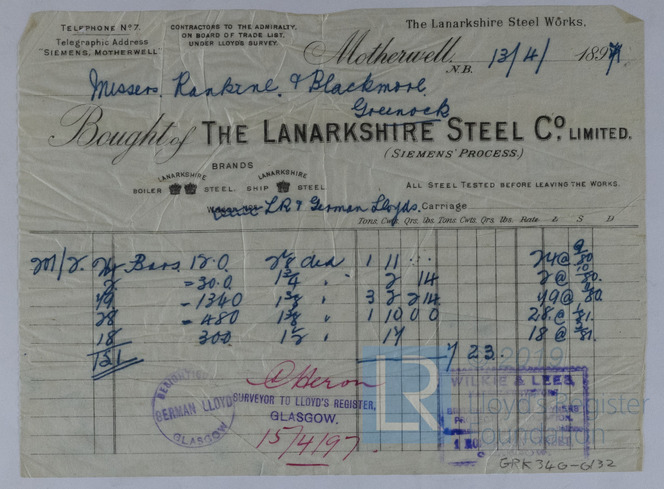 TELEPHONE No 7.
Telegraphic Address
"SIEMENS, MOTHERWELL"
CONTRACTORS TO THE ADMIRALTY,
ON BOARD OF TRADE LIST,
UNDER LLOYDS SURVEY.
The Lanarkshire Steel Works.
Motherwell. 13/4/ 1897
N.B.
Messrs. Rankine & Blackmore,
Greenock
Bought of THE LANARKSHIRE STEEL Co. LIMITED.
(SIEMENS' PROCESS.)
BRANDS
LANARKSHIRE LANARKSHIRE
BOILER STEEL. SHIP STEEL
ALL STEEL TESTED BEFORE LEAVING THE WORKS.
LR & German Lloyds, Carriage
Tons. Cwts. Qrs. lbs. Tons. Cwts. Qrs. lbs. Rate £ S D
Bars 12.0 dia 1 11 24 @
2 = 30.0 1¾ " 2 14 2 @
49 = 1340 3 2 2 14 49 @
28 = 480 1 10 0 0 28 @
18 300 17 18 @
121
7 23.
BERMAN LLOYD
GLASGOW
C Heron
SURVEYOR TO LLOYD'S REGISTER,
GLASGOW.
15/4/97
WILKIE & LEES
LR
2019
Lloyd's Register
Foundation
GRK340-0132